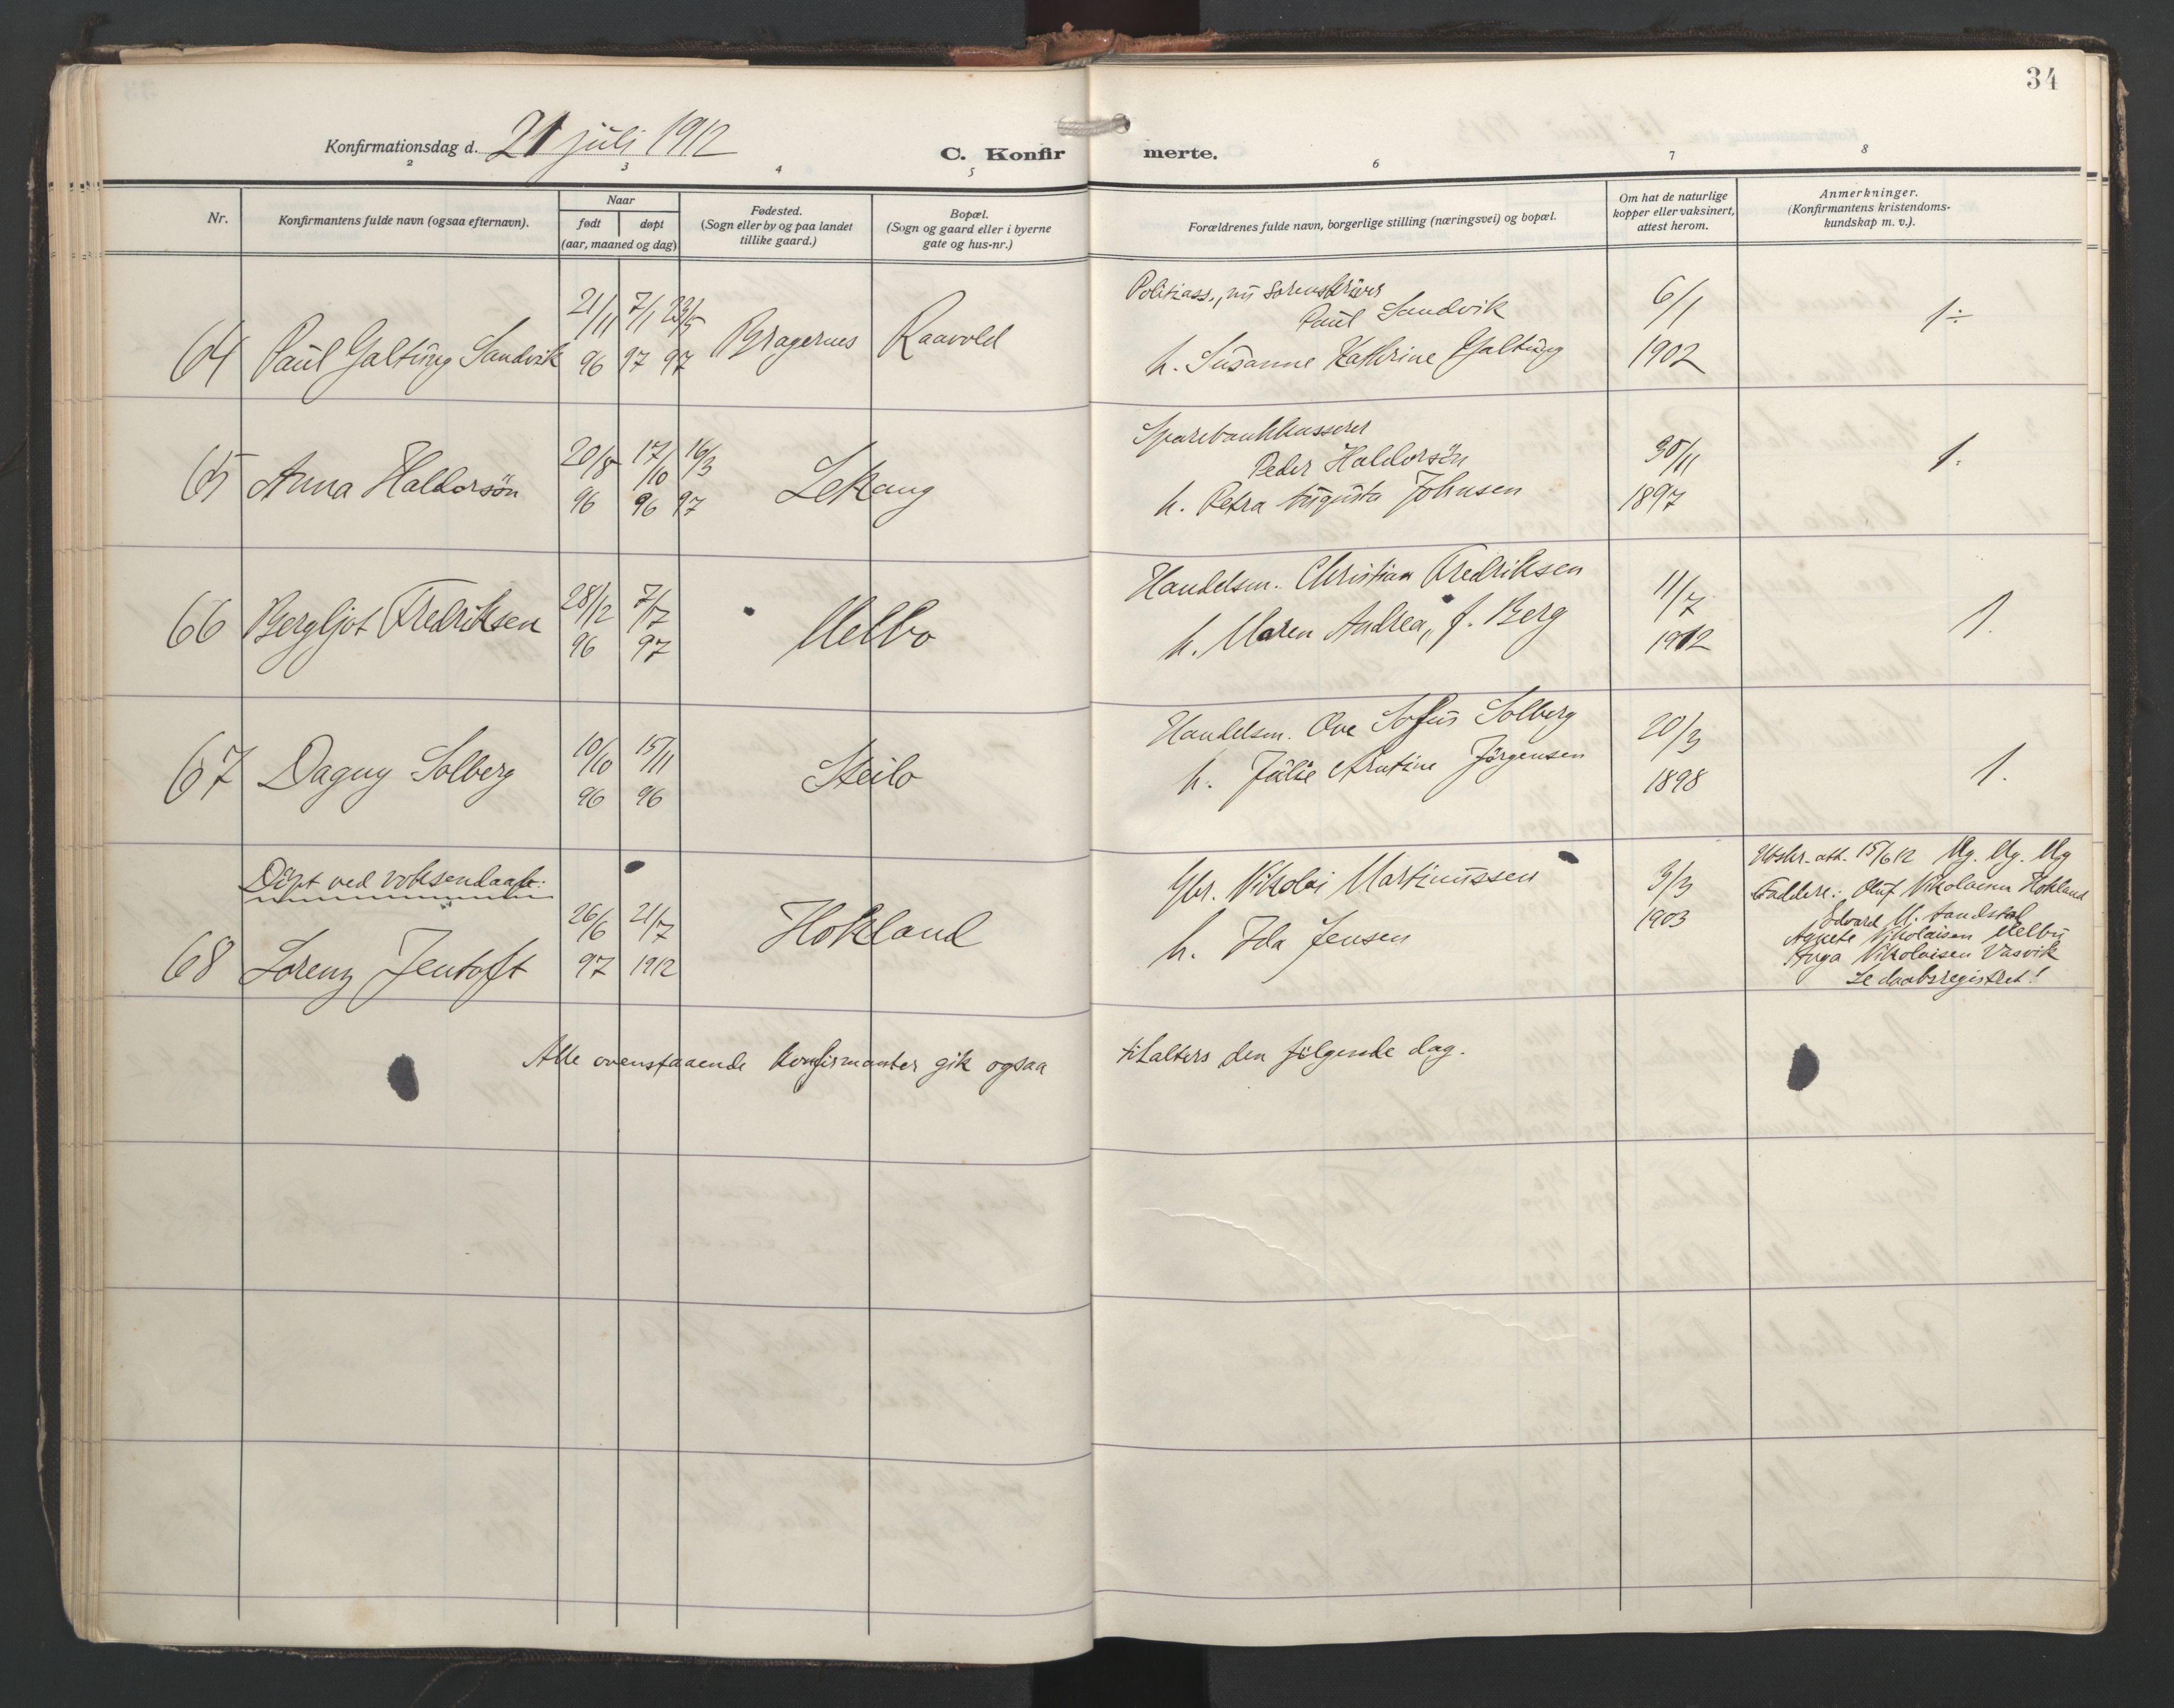 34
Konfirmationsdag d. 21 juli 1912
C. Konfir merte.
2 3 4 5 6 7 8
Nr.
Konfirmantens fulde navn (ogsaa efternavn).
Naar
født døpt
(aar, maaned og dag)
Fødested.
(Sogn eller by og paa landet
tillike gaard.)
Bopæl.
(Sogn og gaard eller i byerne
gate og hus-nr.)
Forældrenes fulde navn, borgerlige stilling (næringsvei) og bopæl.
Om hat de naturlige
kopper eller vaksinert,
attest herom.
Anmerkninger.
(Konfirmantens kristendoms-
kundskap m. v.).
64 Paul Galtung Sandvik
21/11 96
7/1 97 23/5 97
Bragernes
Raavold
Politiass., nu Sorenskriver
Paul Sandvik
h. Susanne Kathrine Galtung
6/1
1902
1÷
65 Anna Haldorsön
20/8 96
17/10 96 16/3 97
Lekang
Sparebankkasserer
Peder Haldorsön
h. Petra Augusta Johnsen
30/11
1897
1.
66 Bergljot Fredriksen
28/12 96
7/7 97
Melbo
Handelsm. Christian Fredriksen
h. Maren Andrea, f. Berg
11/7
1912
1.
67 Dagny Solberg
10/10 96
15/11 96
Steilo
Handelsm. Ove Sofus Solberg
h. Julie Arntine Jörgensen
20/3
1898
1.
Döpt ved voksendaab:
68 Lorenz Jentoft
26/6 97
21/7 1912
Hokland
Gbr. Nikolai Martinussen
h. Ida Jensen
3/3
1903
Utskr. att. 15/6 12 Mg. Mg. Mg
Faddere: Oluf Nikolaisen Hokland
Edvard M. Sandstad
Agnete Nikolaisen Melbu
Inga Nikolaisen Vasvik
Se daabsregistret!
Alle ovenstaaende konfirmanter gik ogsaa tilalters den følgende dag.